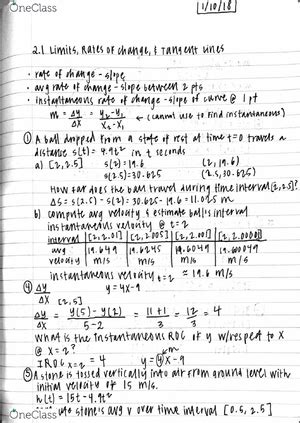 OneClass
1/10/18
2.1 Limits, Rates of change, & Tangent Lines
• rate of change - slope
• avg rate of change - slope between 2 pts
• instantaneous rate of change - slope of curve @ 1 pt
m = Δy/Δx = y₂-y₁/x₂-x₁ (cannot use to find instantaneous)
① A ball dropped from a state of rest at time t=0 travels a
distance s(t) = 4.9t² in t seconds
a) [2, 2.5] s(2) = 19.6 (2, 19.6)
s(2.5) = 30.625 (2.5, 30.625)
How far does the ball travel during time interval [2, 2.5]?
ΔS = s(2.5) - s(2) = 30.625 - 19.6 = 11.025 m
b) compute avg velocity & estimate ball's
instantaneous velocity @ t = 2
interval [2, 2.01] [2, 2.005] [2, 2.001] [2, 2.00001]
avg 19.649 19.6245 19.6049 19.600049
velocity m/s m/s m/s m/s
instantaneous velocity t=2 ≈ 19.6 m/s
④ Δy/Δx y = 4x-9
[2, 5]
Δy/Δx = y(5) - y(2)/5-2 = 11+1/3 = 12/3 = 4
What is the instantaneous ROC of y w/respect to x
@ x = 2?
IROC x=2 = 4 y = 4x-9
m
⑤ A stone is tossed vertically into air from ground level with
initial velocity of 15 m/s.
h(t) = 15t - 4.9t²
stone's avg v over time interval [0.5, 2.5]
OneClass